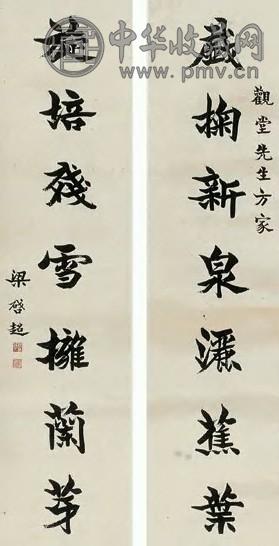 中华收藏网
www.pmv.cn
觀堂先生方家
戲掬新泉灑蕉葉
旋培殘雪擁蘭芽
梁啓超